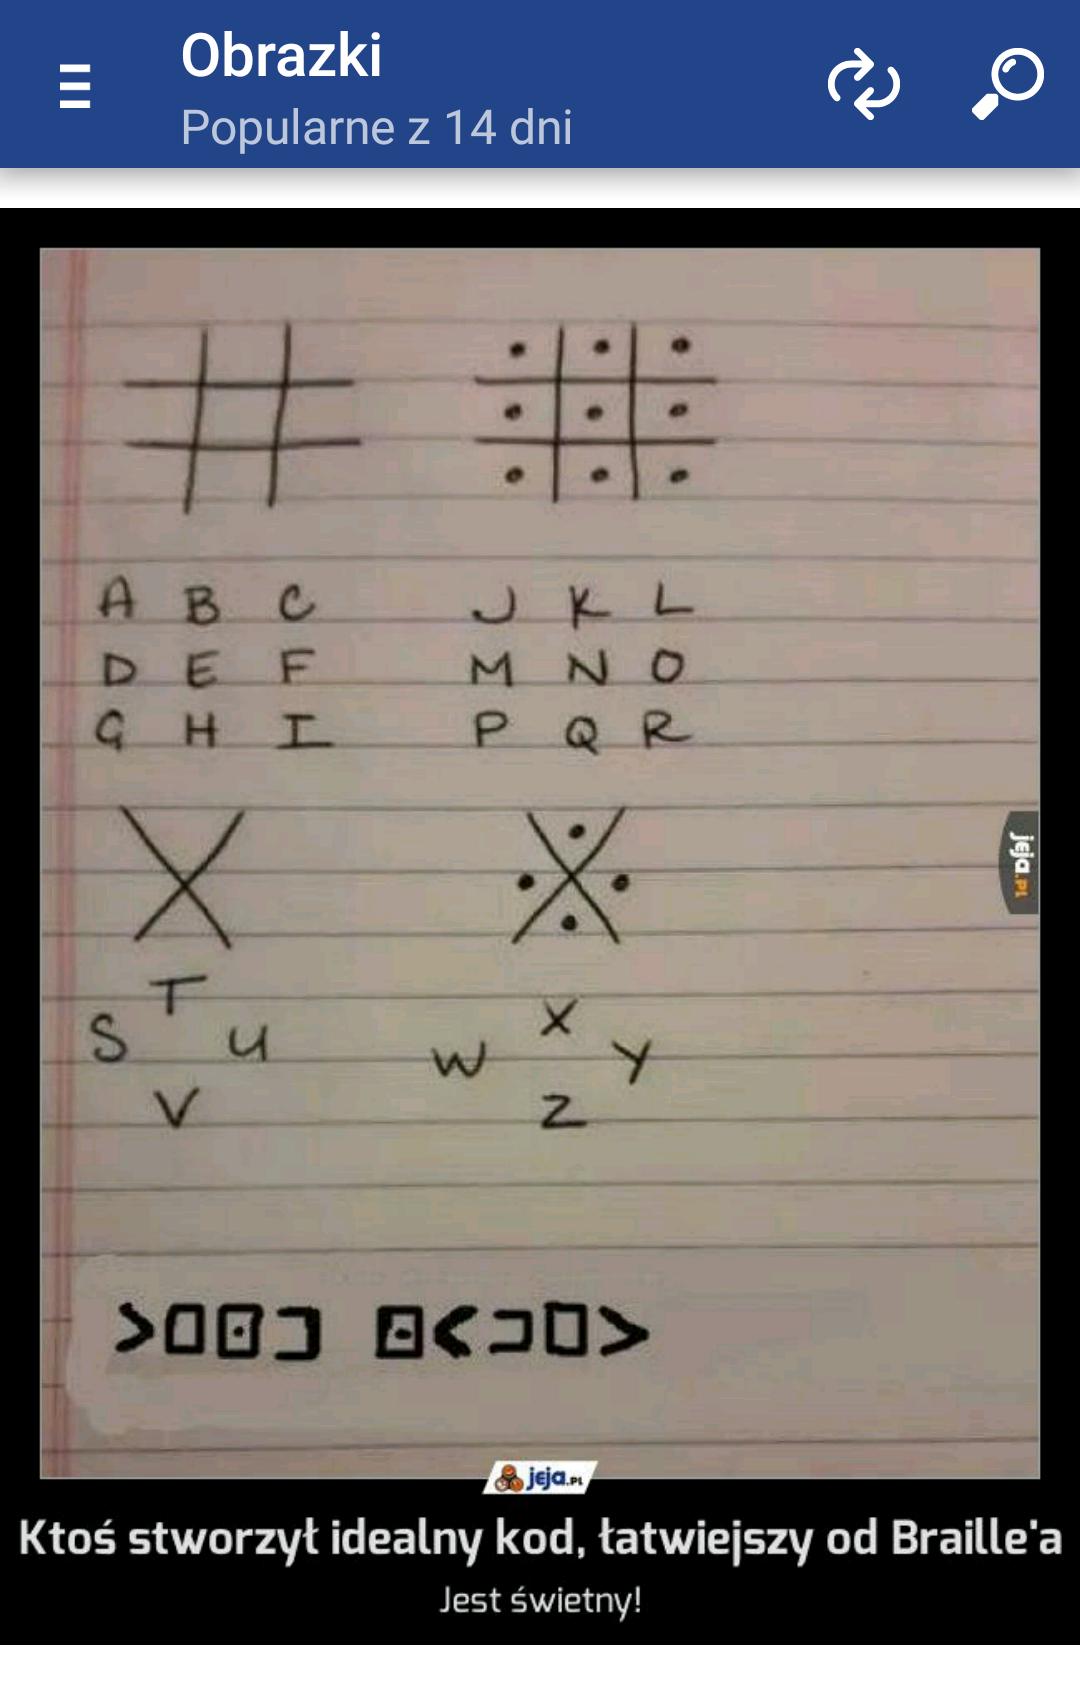 Obrazki
Popularne z 14 dni
A B C J K L
D E F M N O
G H I P Q R
T
S U
V
X
W Y
Z
jeja.PL
jeja.PL
Ktoś stworzył idealny kod, łatwiejszy od Braille'a
Jest świetny!